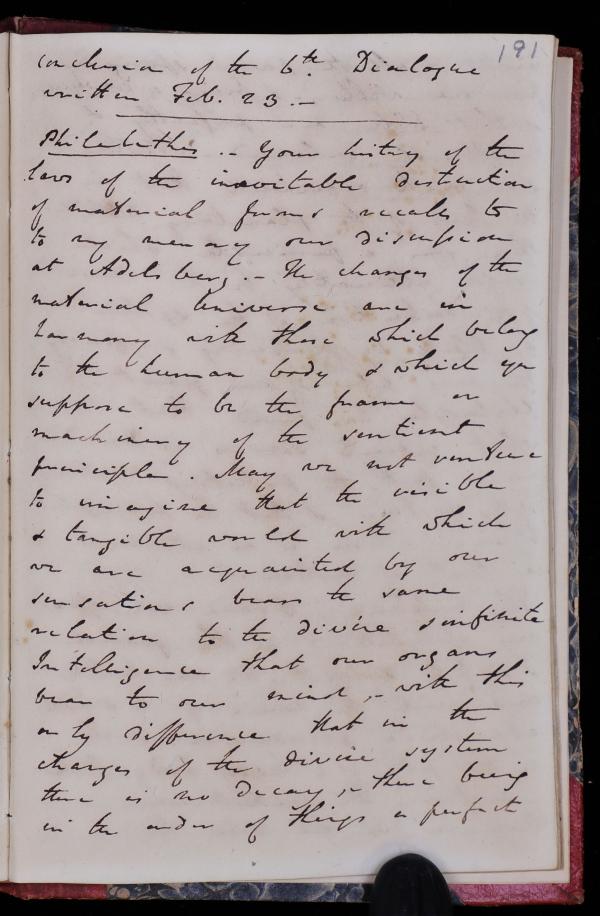 191
Conclusion of the 6th. Dialogue
written Feb. 23. -
Philalethes .- Your history of the
laws of the inevitable destruction
of material forms recals to
to my memory our discussion
at Adelsberg. - The changes of the
material Universe are in
harmony with those which belong
to the human body & which you
suppose to be the frame or
machinery of the sentient
principle. May we not venture
to imagine that the visible
& tangible world with which
we are acquainted by our
sensations bears the same
relation to the divine & infinite
Intelligence that our organs
bear to our mind, - with this
only difference that in the
changes of the divine system
there is no decay, - there being
in the order of things a perfect